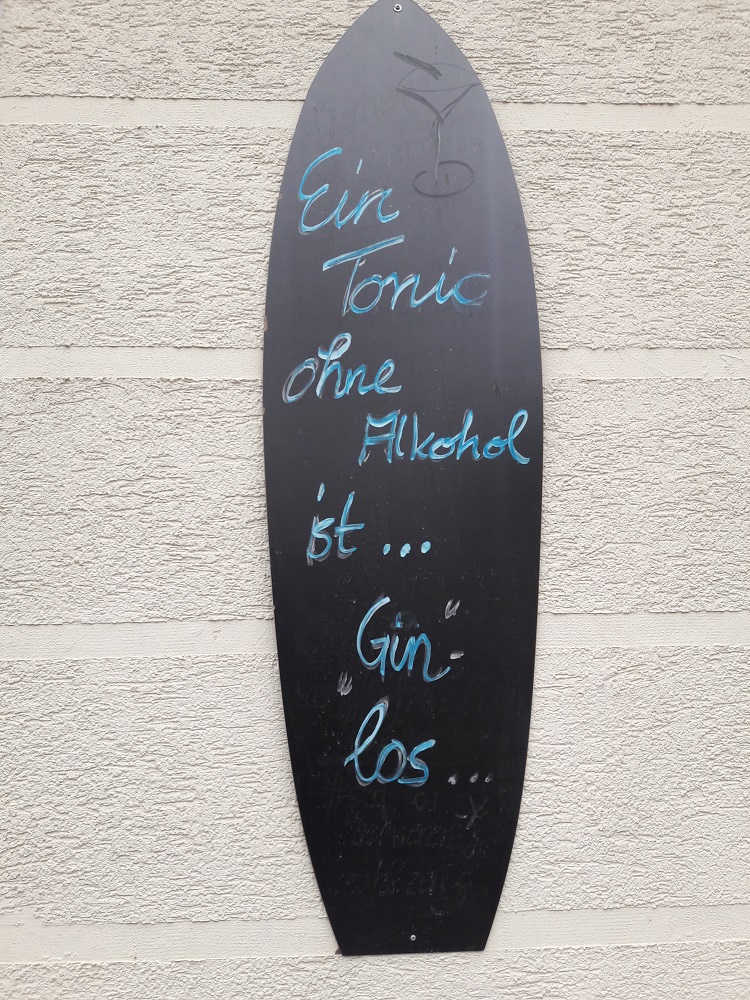 Ein
Tonic
ohne
Alkohol
ist ...
„Gin“-
los ...